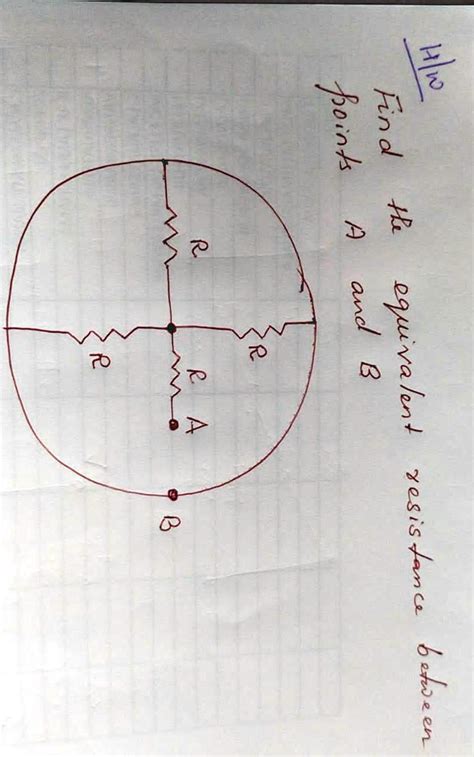 H/W
Find the equivalent resistance between
points A and B
R
R
R
A
B
R